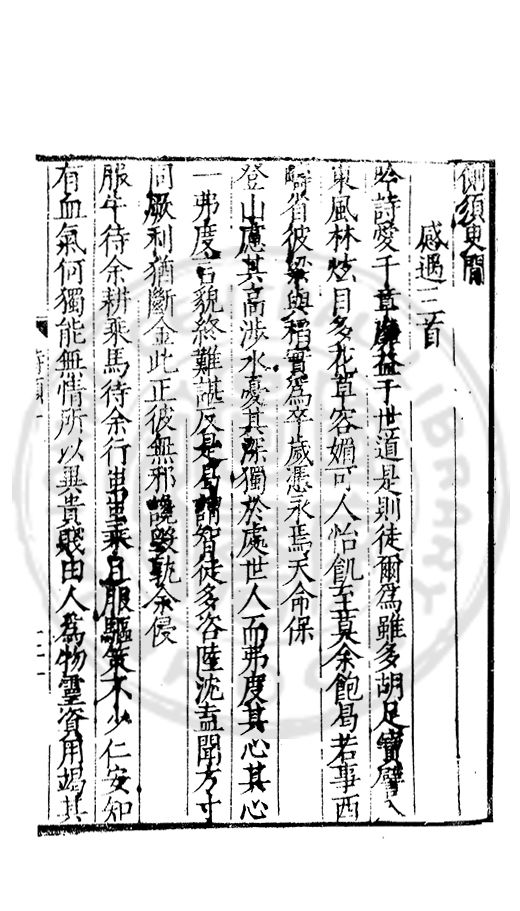 側須臾間
感遇三首
吟詩愛千章靡益于世道是則徒爾為雖多胡足寶譬入
東風林炫目多花草容媚可人怡飢至莫余飽曷若事西
疇省彼粱與稻實為卒歲憑永焉天命保
登山慮其高涉水憂其深獨於處世人而弗度其心其心
一弗度言貌終難諶反是曷謂智徒多咨陸沈盍聞方寸
同厥利猶斷金此正彼無邪讒毀孰余侵
服牛待余耕乘馬待余行耕乘且服驅策不少仁安知
有血氣何獨能無情所以異貴賤由人為物靈資用竭其